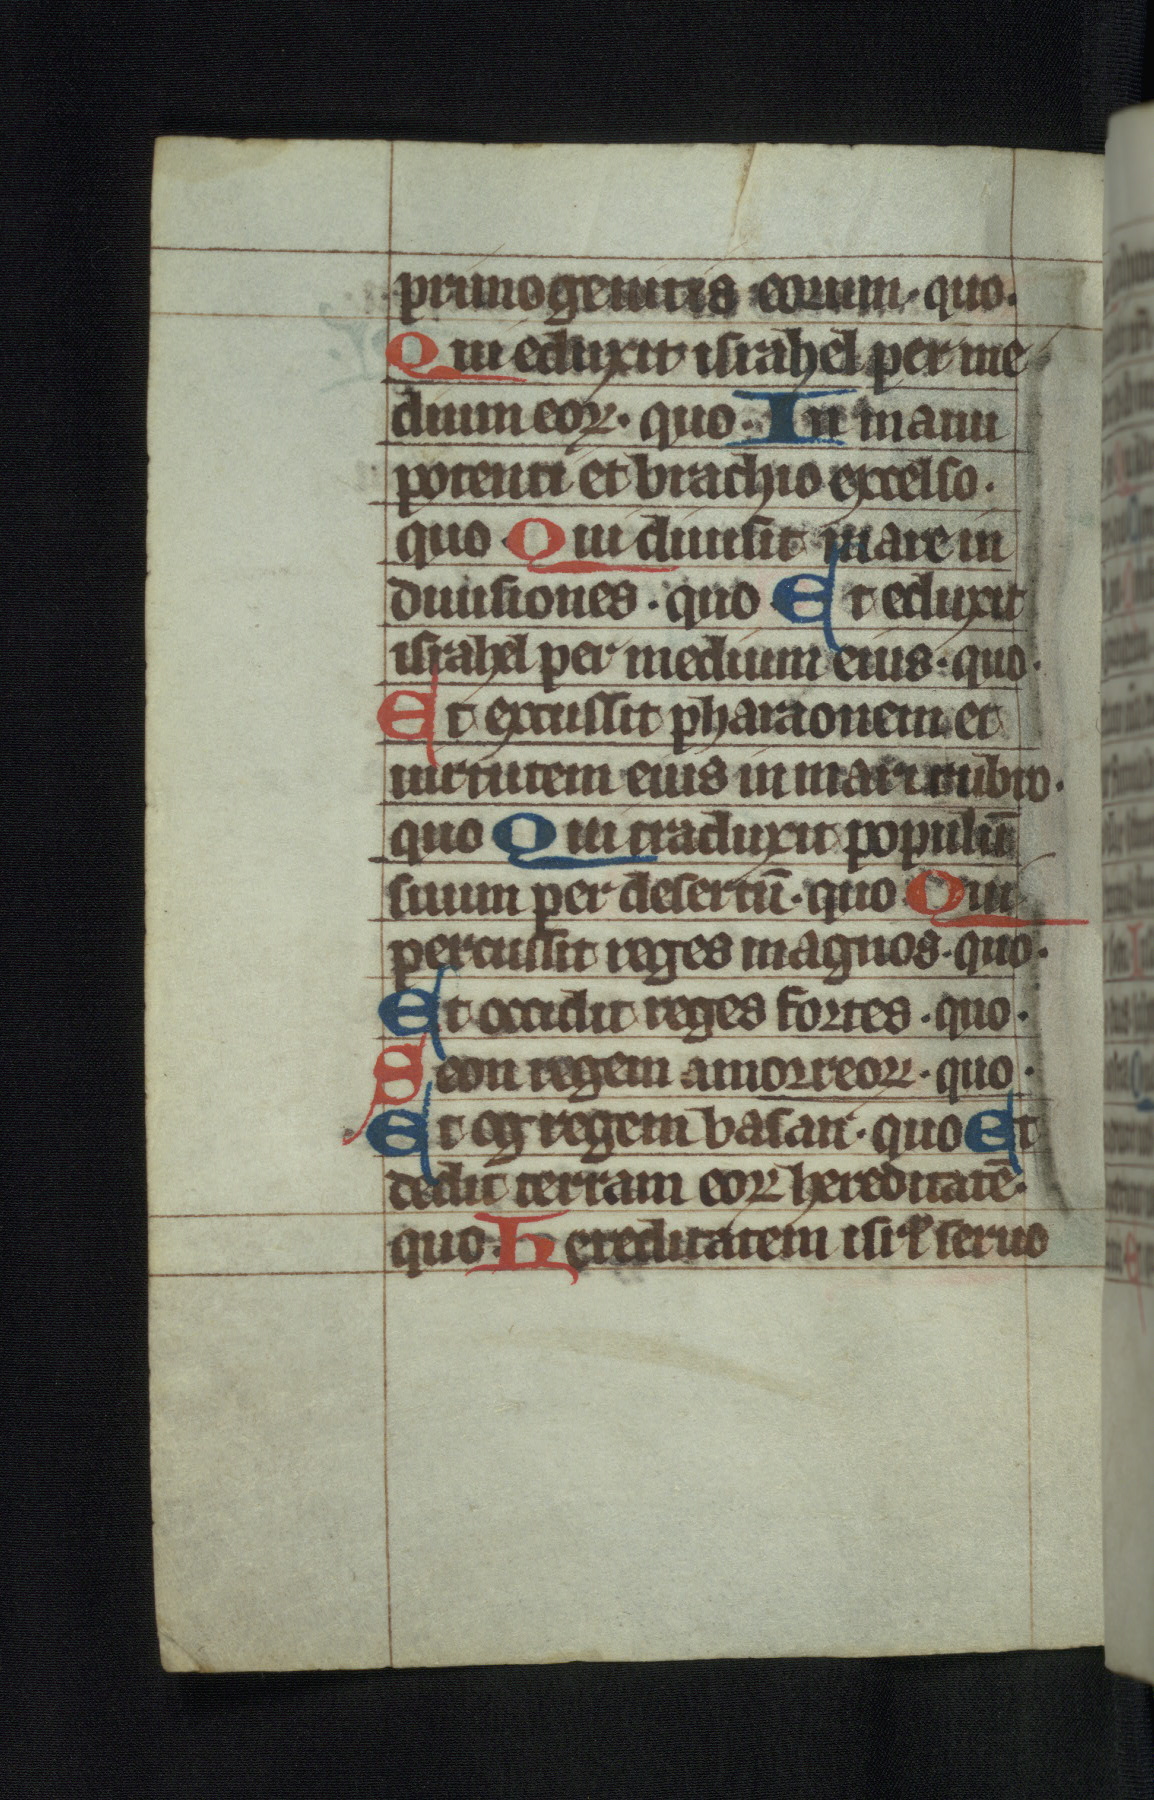 primogenitis eorum · quo ·
Qui eduxit israhel per me
dium eoꝝ · quo · In manu
potenti et brachio excelso ·
quo · Qui diuisit mare in
diuisiones · quo Et eduxit
israhel per medium eius · quo ·
Et excussit pharaonem et
uirtutem eius in mari rubro ·
quo Qui traduxit populū
suum per desertū · quo Qui
percussit reges magnos · quo ·
Et occidit reges fortes · quo ·
Seon regem amorreoꝝ · quo ·
Et og regem basan · quo Et
dedit terram eoꝝ hereditatē ·
quo · Hereditatem isrł seruo